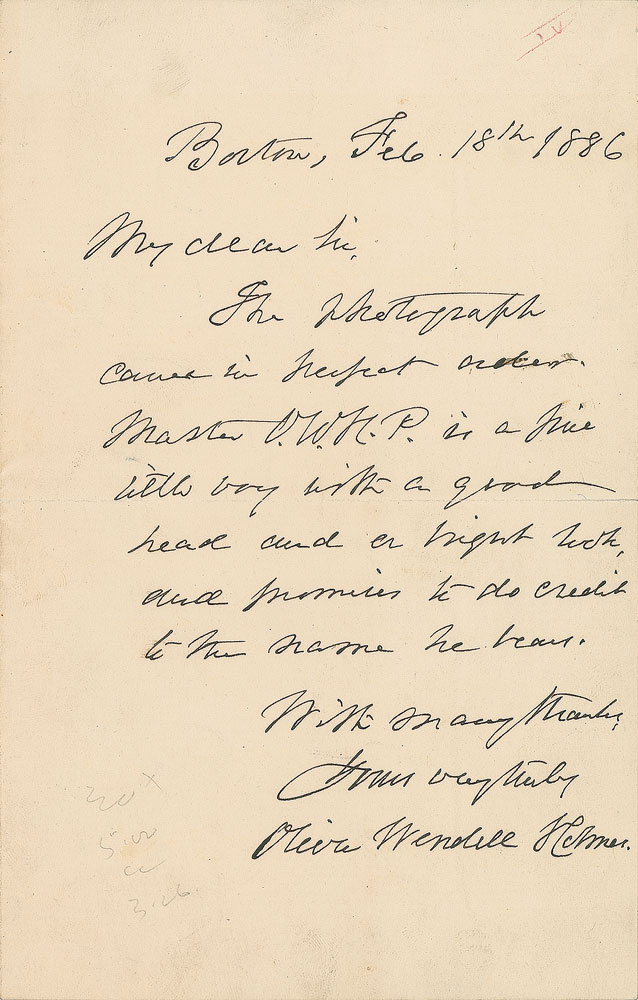 Boston, Feb. 18th 1886
My dear Sir,
The photograph
came in perfect order.
Master O.W.H.P. is a fine
little boy with a good
head and a bright look,
and promises to do credit
to the name he bears.
With many thanks,
Yours very truly
Oliver Wendell Holmes.
5.00
3.26